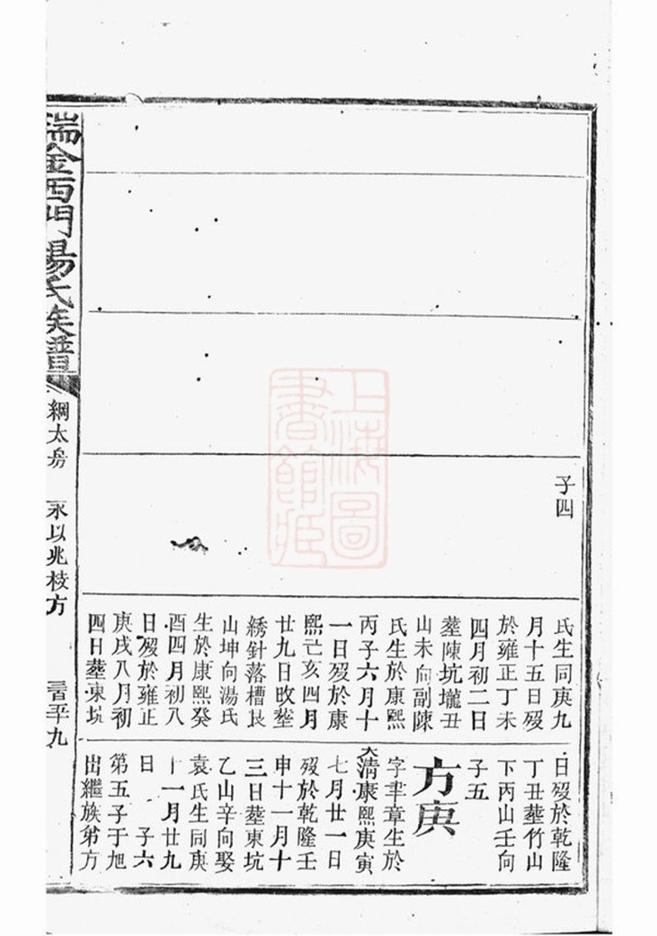 子四
氏生同庚九
月十五日歿
於雍正丁未
四月初二日
塟陳坑壠丑
山未向副陳
氏生於康熙
丙子六月十
一日歿於康
熙己亥四月
廿九日改塟
綉針落槽艮
山坤向湯氏
生於康熙癸
酉四月初八
日歿於雍正
庚戌八月初
四日塟東坑
日歿於乾隆
丁丑塟竹山
下丙山壬向
子五
方庚
字聿章生於
大清康熙庚寅
七月廿一日
歿於乾隆壬
申十一月十
三日塟東坑
乙山辛向娶
袁氏生同庚
十一月廿九
日 子六
第五子于旭
出繼族弟方
瑞金西門楊氏族譜
綱太房
永以兆枝方
平九
上海圖
書館藏